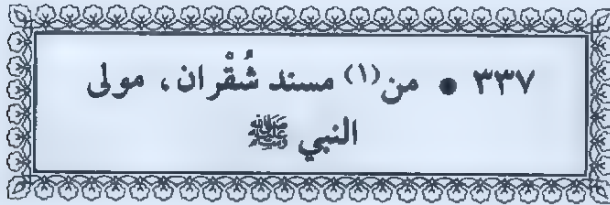 ٣٣٧ • من(١) مسند شُقْران، مولى
النبي ﷺ